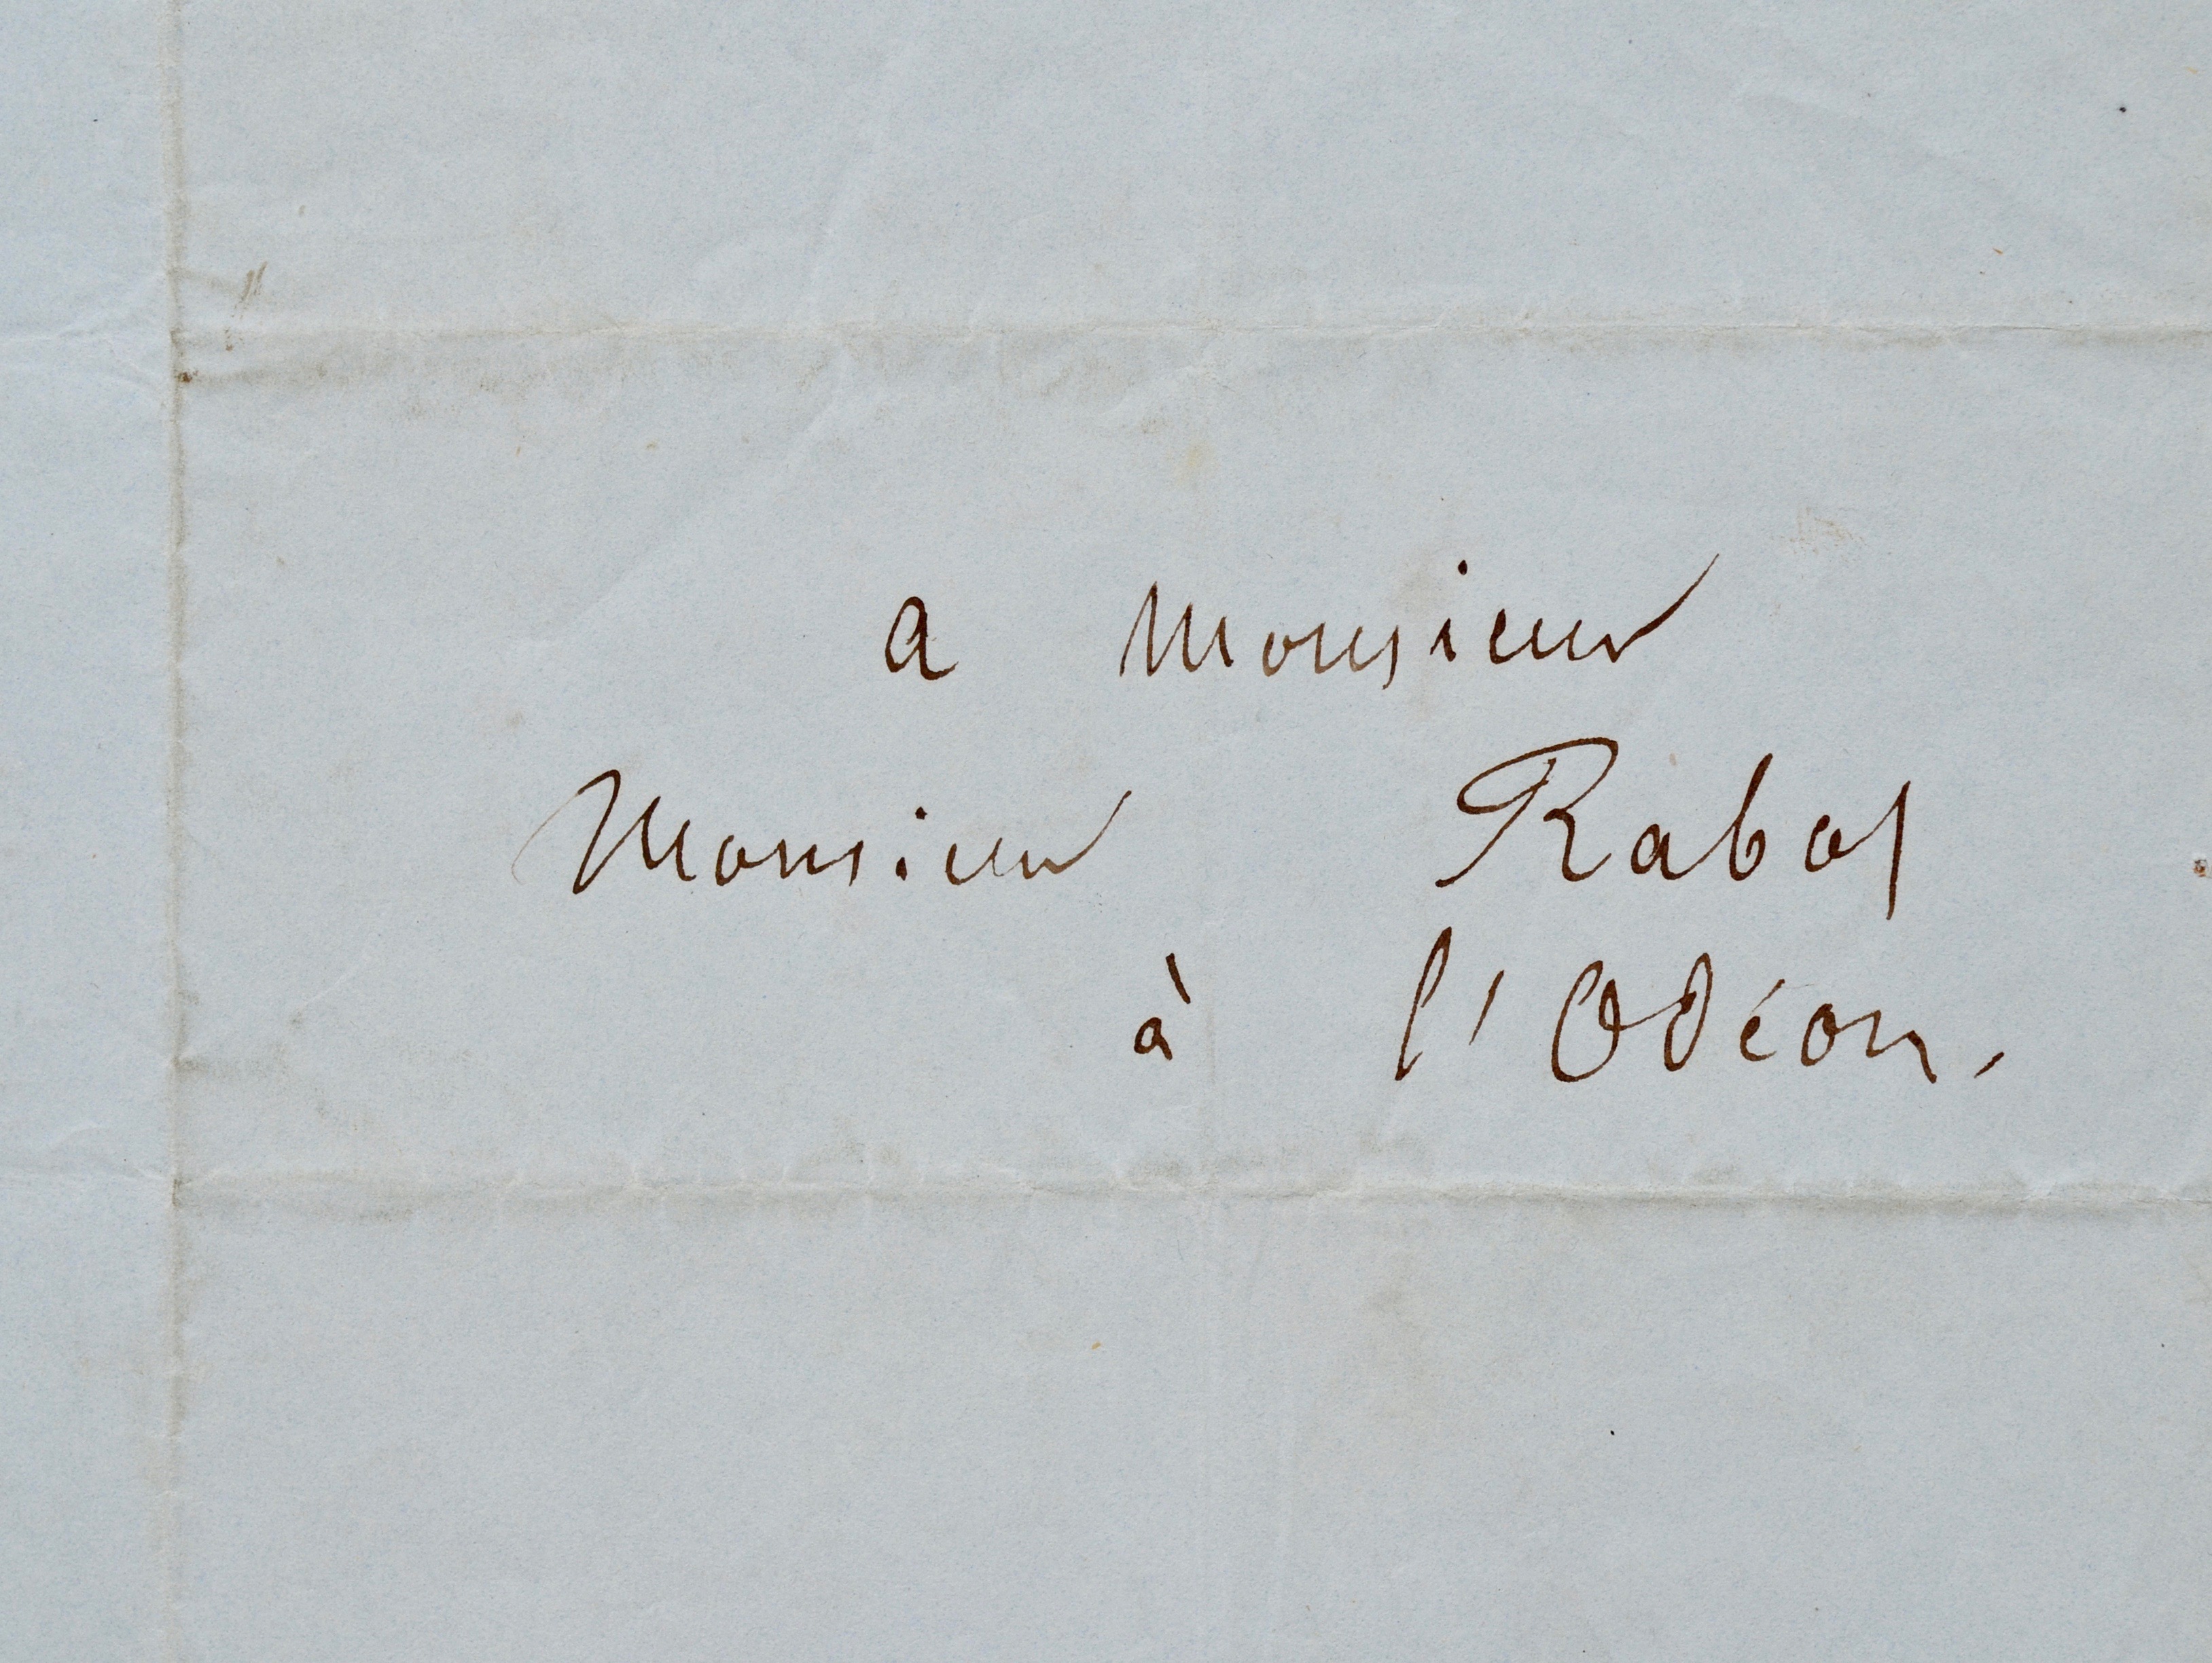 a Monsieur
Monsieur Rabot
à l'Odéon.